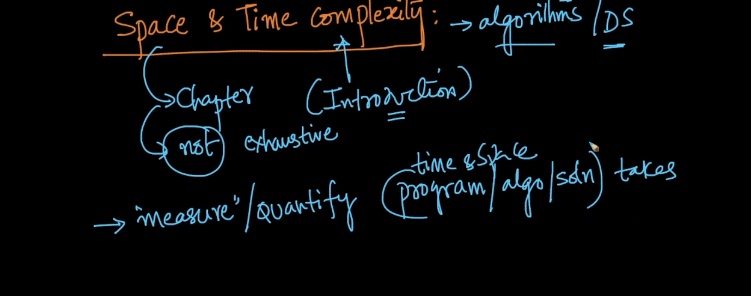 Space & Time Complexity: → algorithms/DS
→ Chapter (Introduction)
→ not exhaustive
time & space
→ "measure"/quantify (program/algo/soln) takes